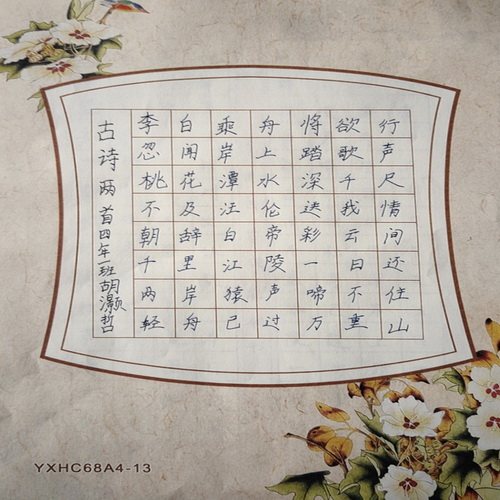 古诗两首四年一班胡灏哲
李白乘舟将欲行
忽闻岸上踏歌声
桃花潭水深千尺
不及汪伦送我情
朝辞白帝彩云间
千里江陵一日还
两岸猿声啼不住
轻舟已过万重山
YXHC68A4-13